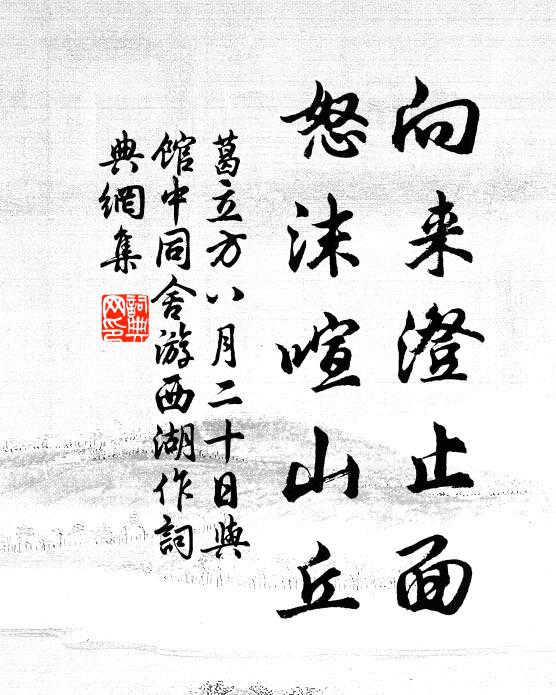 向来澄止面
怒沫喧山丘
葛立方八月二十日與
館中同舍游西湖作詞
典網集
詞典网印